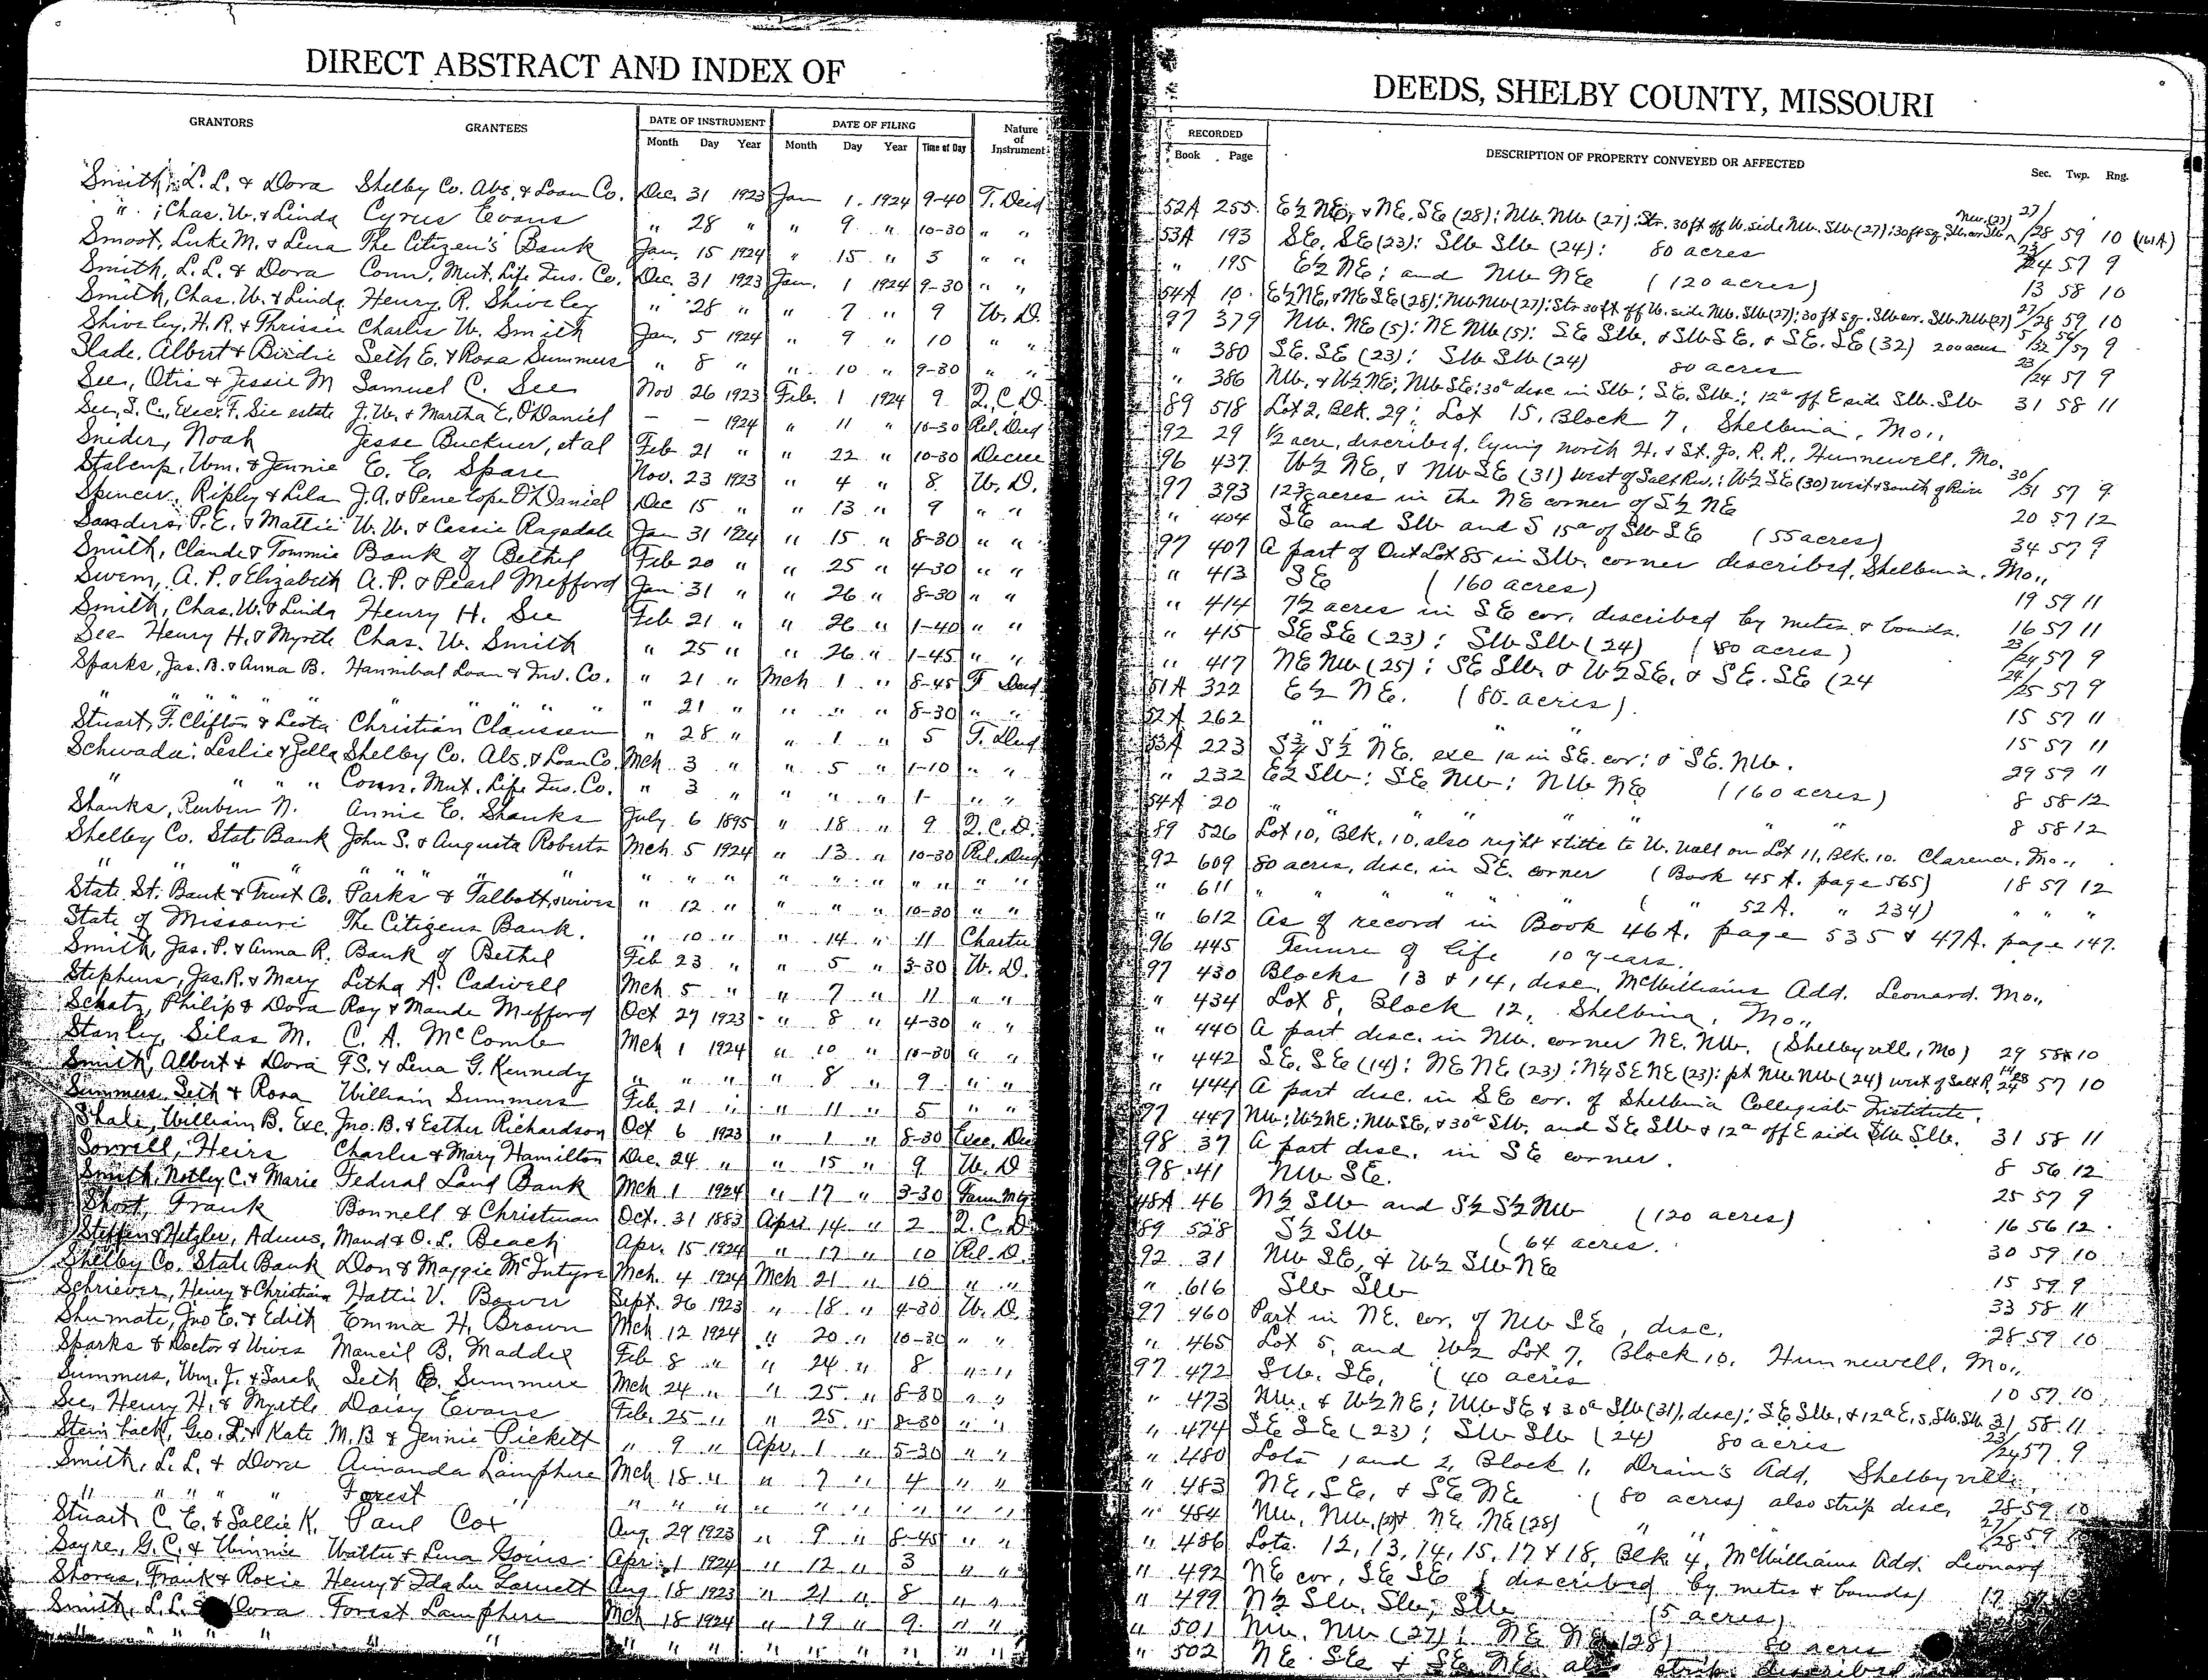 DIRECT ABSTRACT AND INDEX OF
DEEDS, SHELBY COUNTY, MISSOURI
GRANTORS GRANTEES DATE OF INSTRUMENT DATE OF FILING Nature of Instrument RECORDED DESCRIPTION OF PROPERTY CONVEYED OR AFFECTED
Month Day Year Month Day Year Time of Day Book Page Sec. Twp. Rng.
Smith, L. L. & Dora Shelby Co. Abs. & Loan Co. Dec. 31 1923 Jan 1 1924 9-40 T. Deed 52A 255 E½ NE, & NE, SE (28); NW. NW (27); Str. 30ft off W. side NW. SW (27); 30ft sq. 27/28 59 10
" Chas. W. & Linda Cyrus Evans " 28 " " 9 " 10-30 " " 53A 193 SE, SE (23); SW SW (24): 80 acres 23/24 57 9
Smoot, Luke M. & Lena The Citizen's Bank Jan. 15 1924 " 15 " 3 " " " 195 E½ NE; and NW NE (120 acres) 13 58 10
Smith, L. L. & Dora Conn. Mut. Life Ins. Co. Dec. 31 1923 Jan. 1 1924 9-30 " " 54A 10 E½ NE, & NE SE (28); NW NW (27); Str 30ft off W. side NW. SW (27); 30 ft sq. SW cor. SW. NW (27) 27/28 59 10
Smith, Chas. W. & Linda Henry R. Shiveley " 28 " " 7 " 9 W. D. 97 379 NW. NE (5); NE NW (5); SE SW, & SW SE, & SE. SE (32) 200 acres 5/32 56/57 9
Shiveley, H. R. & Thrissie Charlie W. Smith Jan. 5 1924 " 9 " 10 " " " 380 SE. SE (23); SW SW (24) 80 acres 23/24 57 9
Slade, Albert & Birdie Seth E. & Rosa Summers " 8 " " 10 " 9-30 " " " 386 NW, & W½ NE; NW SE; 30a disc in SW; SE. SW; 12a off E side SW. SW 31 58 11
See, Otis & Jessie M Samuel C. See Nov 26 1923 Feb. 1 1924 9 Q. C. D. 89 518 Lot 2, Blk. 29; Lot 15, Block 7, Shelbina, Mo.,
See, S. C., Exec. F. See estate J. W. & Martha E. O'Daniel — — 1924 " 11 " 10-30 Rel. Deed 92 29 ½ acre, described, lying north H. & St. Jo. R. R., Hunnewell, Mo.
Snider, Noah Jesse Buckner, et al Feb 21 " " 22 " 10-30 Decree 96 437 W½ NE, & NW SE (31) west of Salt Riv.; W½ SE (30) west & south of River 30/31 57 9
Stalcup, Wm. & Jennie E. E. Spare Nov. 23 1923 " 4 " 8 W. D. 97 393 acres in the NE corner of S½ NE 20 57 12
Spencer, Ripley & Lila J. A. & Penelope O'Daniel Dec 15 " " 13 " 9 " " " 404 SE and SW and S 15a of SW SE (55 acres) 34 57 9
Sanders, P. E. & Mattie W. W. & Cassie Ragsdale Jan 31 1924 " 15 " 8-30 " " 97 407 A part of Out Lot 85 in SW. corner described, Shelbina, Mo.,
Smith, Claude & Tommie Bank of Bethel Feb 20 " " 25 " 4-30 " " " 413 SE (160 acres) 19 59 11
Swem, A. P. & Elizabeth A. P. & Pearl Mefford Jan 31 " " 26 " 8-30 " " " 414 7½ acres in SE cor, described by metes & bounds. 16 57 11
Smith, Chas. W. & Linda Henry H. See Feb 21 " " 26 " 1-40 " " " 415 SE SE (23); SW SW (24) (80 acres) 23/24 57 9
See Henry H. & Myrtle Chas. W. Smith " 25 " " 26 " 1-45 " " " 417 NE NW (25); SE SW, & W½ SE, & SE. SE (24 24/25 57 9
Sparks, Jas. B. & Anna B. Hannibal Loan & Inv. Co. " 21 " Mch 1 " 8-45 T Deed 51A 322 E½ NE. (80 acres). 15 57 11
" " " " " " " " 21 " " " " 8-30 " " 52A 262 " " " 15 57 11
Stuart, F. Clifton & Leota Christian Claussen " 28 " " 1 " 5 T. Deed 53A 223 S¾ S½ NE, exc 1a in SE. cor; & SE. NW. 29 59 11
Schwada, Leslie & Zella Shelby Co. Abs. & Loan Co. Mch 3 " " 5 " 1-10 " " " 232 E½ SW; SE NW; NW NE (160 acres) 8 58 12
" " " " Conn. Mut. Life Ins. Co. " 3 " " " " 1- " " 54A 20 " " " " " 8 58 12
Shanks, Reuben N. Annie E. Shanks July 6 1895 " 18 " 9 Q. C. D. 89 526 Lot 10, Blk. 10, also right & title to W. wall on Lot 11, Blk. 10. Clarence, Mo.,
Shelby Co. State Bank John S. & Augusta Roberts Mch 5 1924 " 13 " 10-30 Rel. Deed 92 609 80 acres, disc. in SE. corner (Book 45 A. page 565) 18 57 12
" " " " " " " " " " " " " " " " " 611 " " " " ( " 52A. " 234) " " "
State St. Bank & Trust Co. Parks & Talbott, & wives " 12 " " " " 10-30 " " " 612 As of record in Book 46A. page 535 & 47A. page 147.
State of Missouri The Citizens Bank. " 10 " " 14 " 11 Charter 96 445 Tenure of life 10 years.
Smith, Jas. P. & Anna R. Bank of Bethel Feb 23 " " 5 " 3-30 W. D. 97 430 Blocks 13 & 14, disc. McWilliams Add. Leonard. Mo.,
Stephens, Jas. R. & Mary Litha A. Cadwell Mch 5 " " 7 " 11 " " " 434 Lot 8, Block 12, Shelbina, Mo.,
Schatz, Philip & Dora Ray & Maude Mefford Oct 27 1923 " 8 " 4-30 " " " 440 A part disc. in NW. corner NE. NW. (Shelbyville, Mo) 29 58 10
Stanley, Silas M. C. A. McComb Mch 1 1924 " 10 " 10-30 " " " 442 SE. SE (14); NE NE (23); SE NE (23); pt NW NW (24) west of Salt R. 57 10
Smith, Albert & Dora F. S. & Lena G. Kennedy " " " " 8 " 9 " " " 444 A part disc. in SE cor. of Shelbina Collegiate Institute.
Summers Seth & Rosa William Summers Feb. 21 " " 11 " 5 " " 97 447 NW; W½ NE; NW SE, & 30a SW, and SE SW & 12a off E side SW SW. 31 58 11
Shale, William B. Exe. Jno. B. & Esther Richardson Oct 6 1923 " 1 " 8-30 98 37 A part disc. in SE corner. 8 56 12
Sorrell, Heirs Charlie & Mary Hamilton Dec. 24 " " 15 " 9 W. D 98 41 NW SE. 25 57 9
Smith, Notley C. & Marie Federal Land Bank Mch 1 1924 " 17 " 3-30 Farm Mtg 48A 46 N½ SW and S½ S½ NW (120 acres) 16 56 12
Short, Frank Bonnell & Christman Oct. 31 1883 Apr. 14 " 2 Q. C. D 89 528 S½ SW (64 acres. 30 59 10
Steffen & Hetzler, Admrs, Maud & O. L. Beach Apr. 15 1924 " 17 " 10 Rel. D. 92 31 NW SE, & W½ SW NE 15 59 9
Shelby Co. State Bank Don & Maggie McIntyre Mch. 4 1924 Mch 21 " 10 " " " 616 SW SW 33 58 11
Schriever, Henry & Christiana Hattie V. Bower Sept. 26 1923 " 18 " 4-30 W. D. 97 460 Part in NE. cor. of NW SE, disc. 28 59 10
Shumate, Jno E. & Edith Emma H. Brown Mch 12 1924 " 20 " 10-30 " " " 465 Lot 5, and W½ Lot 7, Block 10, Hunnewell, Mo.,
Sparks & Doctor & Wives Mancil B. Maddex Feb. 8 " " 24 " 8 " " 97 472 SW. SE. (40 acres 10 57 10
Summers, Wm. J. & Sarah Seth E. Summers Mch 24 " " 25 " 8-30 " " " 473 NW. & W½ NE; NW SE & 30a SW (31), disc); SE SW, & 12a E. s. SW. SW. 31 58 11
See, Henry H. & Myrtle Daisy Evans Feb. 25 " " 25 " 8-30 " " " 474 SE SE (23); SW SW (24) 80 acres 23/24 57 9
Steinback, Geo. L. & Kate M. B & Jennie Pickett " 9 " Apr. 1 " 5-30 " " " 480 Lots 1 and 2, Block 1, Drain's Add. Shelbyville,
Smith, L. L. & Dora Amanda Lamphere Mch 18 " " 7 " 4 " " " 483 NE, SE, & SE NE (80 acres) also strip disc, 28 59 10
" " " " Forest " " " " " " " " " " " 484 NW. NW. & NE. NE (28) " " 27/28 59 10
Stuart C. E. & Sallie K. Paul Cox Aug. 29 1923 " 9 " 8-45 " " " 486 Lots. 12, 13, 14, 15, 17 & 18, Blk. 4, McWilliams Add. Leonard
Sayre, G. C. & Winnie Walter & Lena Goins Apr. 1 1924 " 12 " 3 " " " 492 NE cor, SE SE (described by metes & bounds) 17
Shores, Frank & Roxie Henry & Ida Lu Garnett Aug 18 1923 " 21 " 8 " " " 499 N½ SW, SW, SW (5 acres)
Smith, L. L. & Dora Forest Lamphere Mch 18 1924 " 19 " 9 " " " 501 NW. NW (27); NE NE (28) 80 acres
" " " " " " " " " " " " " " " " 502 NE. SE & SE NE also strip described